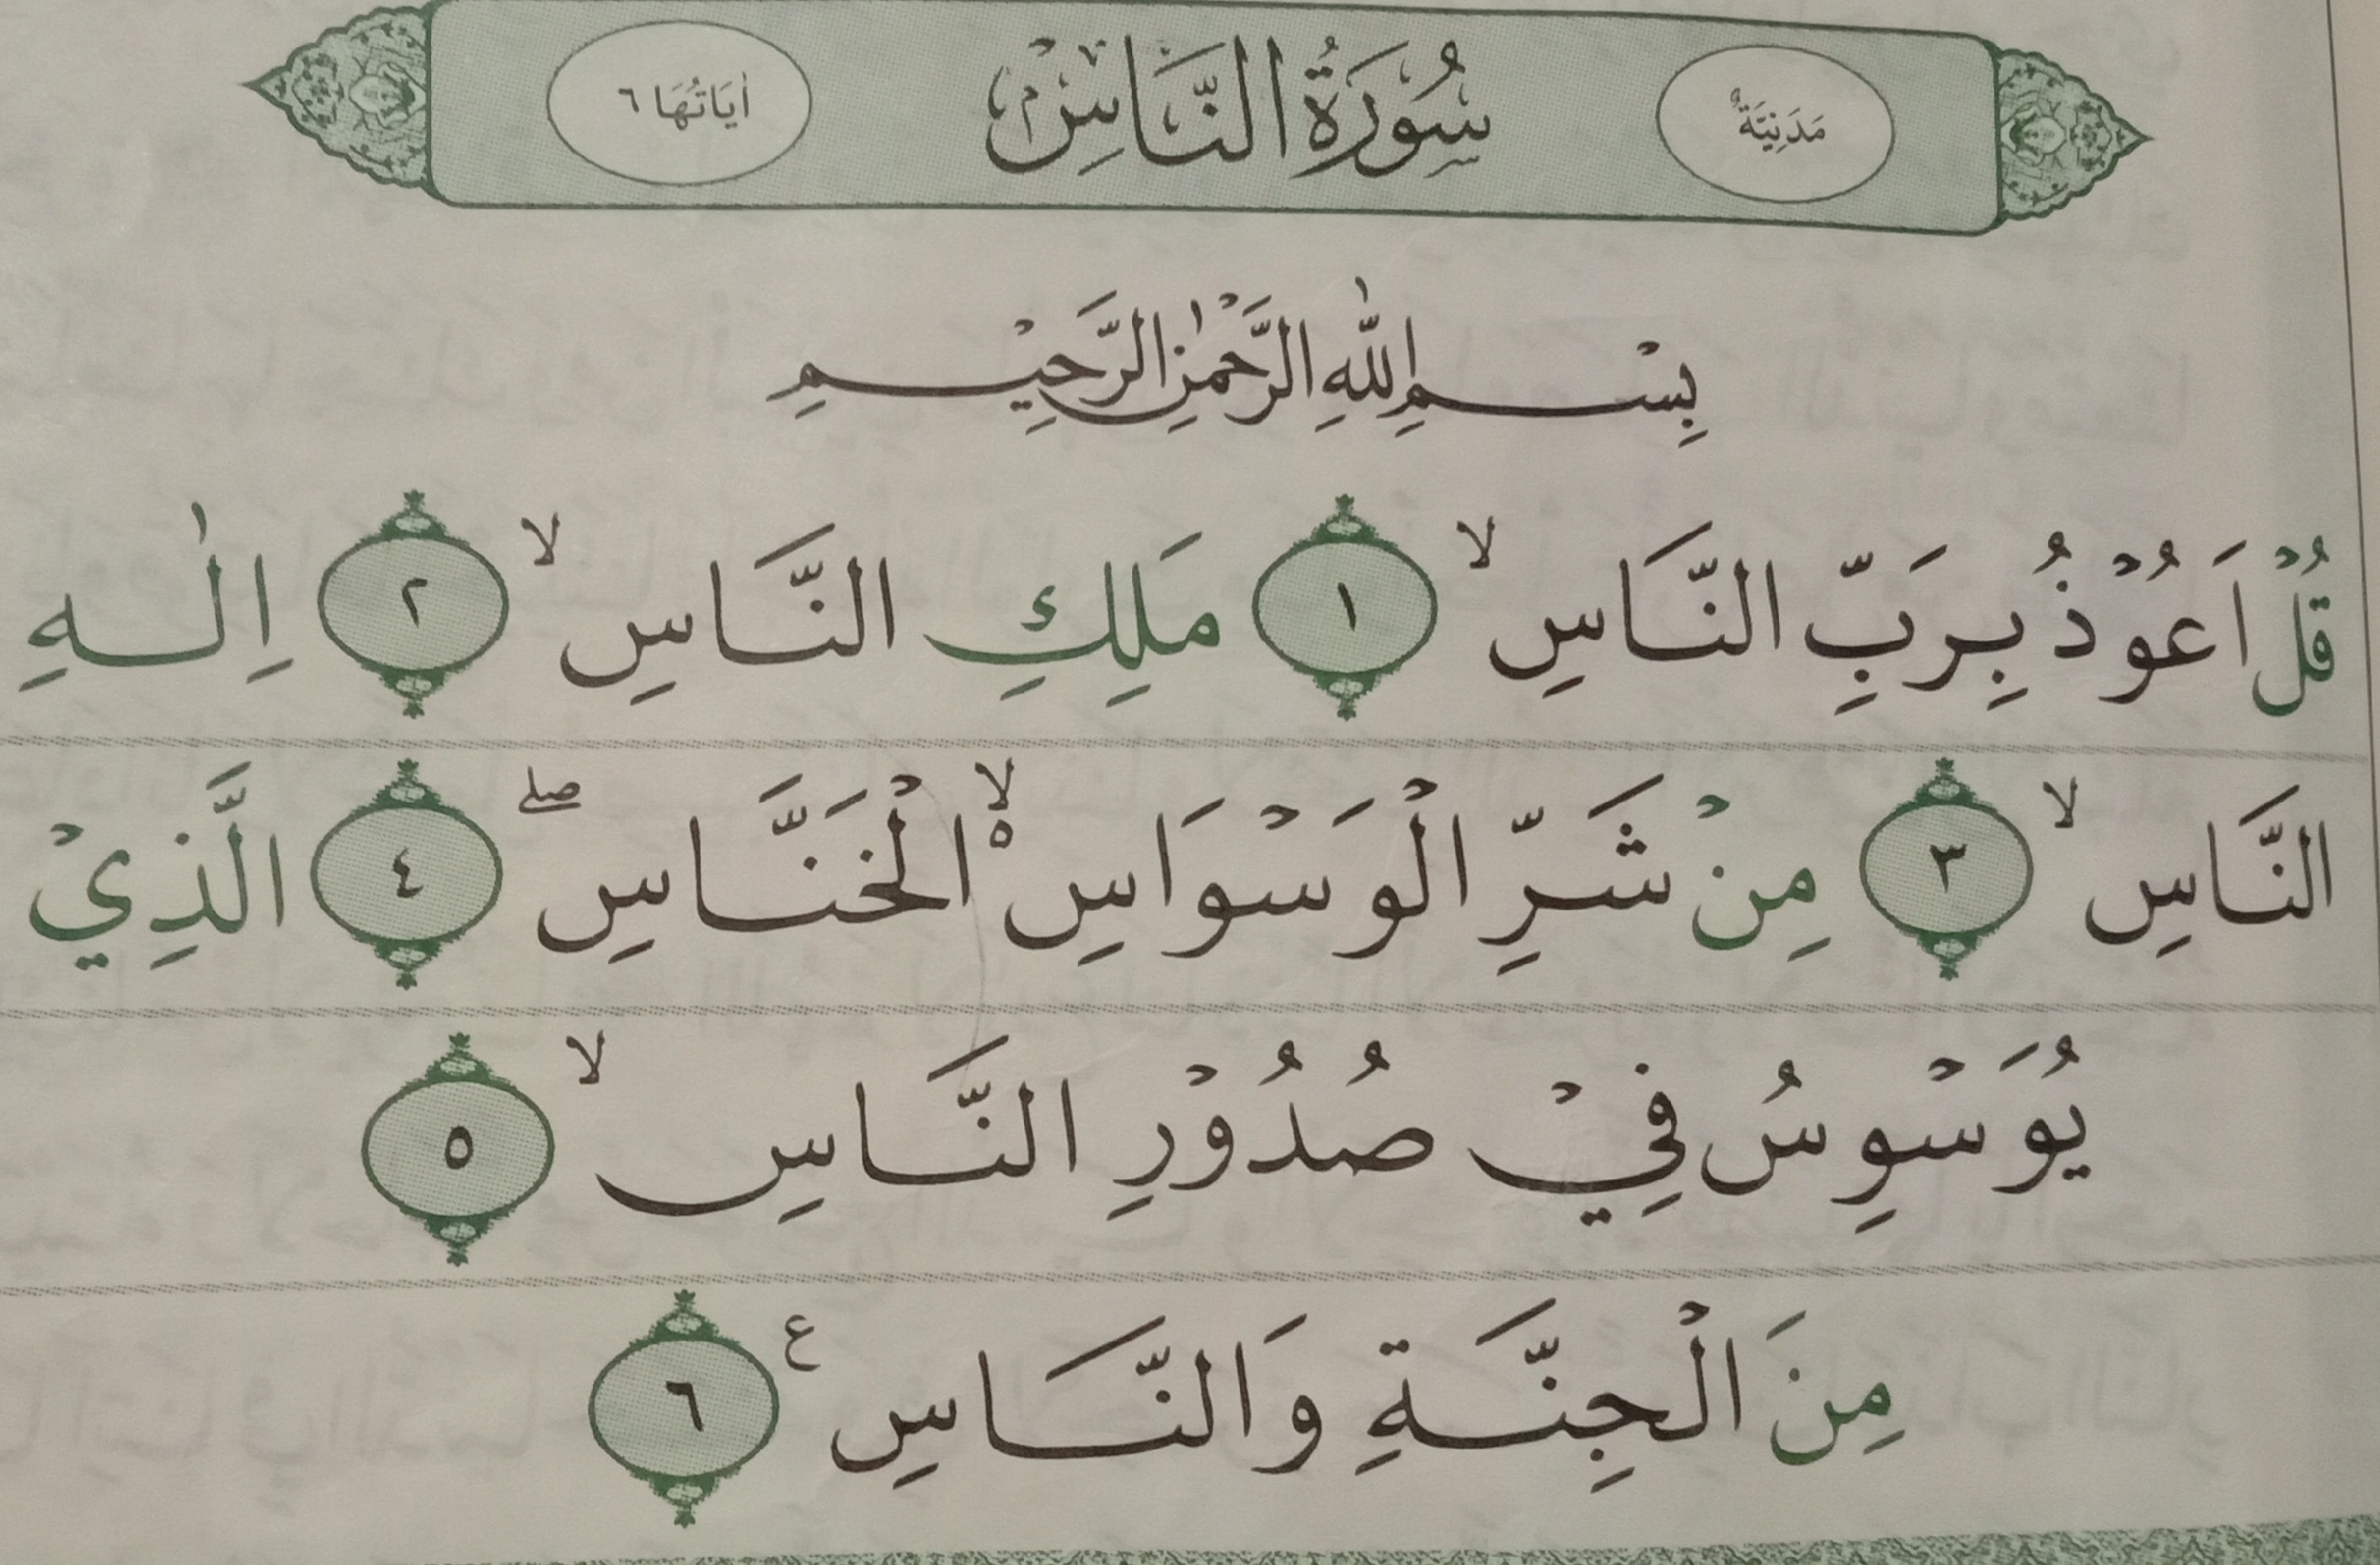 مَدَنِيَّةٌ سُوْرَةُ النَّاسِ اٰيَاتُهَا ٦
بِسْمِ اللّٰهِ الرَّحْمٰنِ الرَّحِيْمِ
قُلْ اَعُوْذُ بِرَبِّ النَّاسِ ۙ ١ مَلِكِ النَّاسِ ۙ ٢ اِلٰهِ
النَّاسِ ۙ ٣ مِنْ شَرِّ الْوَسْوَاسِ ۙ۬ الْخَنَّاسِ ۖ ٤ الَّذِيْ
يُوَسْوِسُ فِيْ صُدُوْرِ النَّاسِ ۙ ٥
مِنَ الْجِنَّةِ وَالنَّاسِ ع ٦